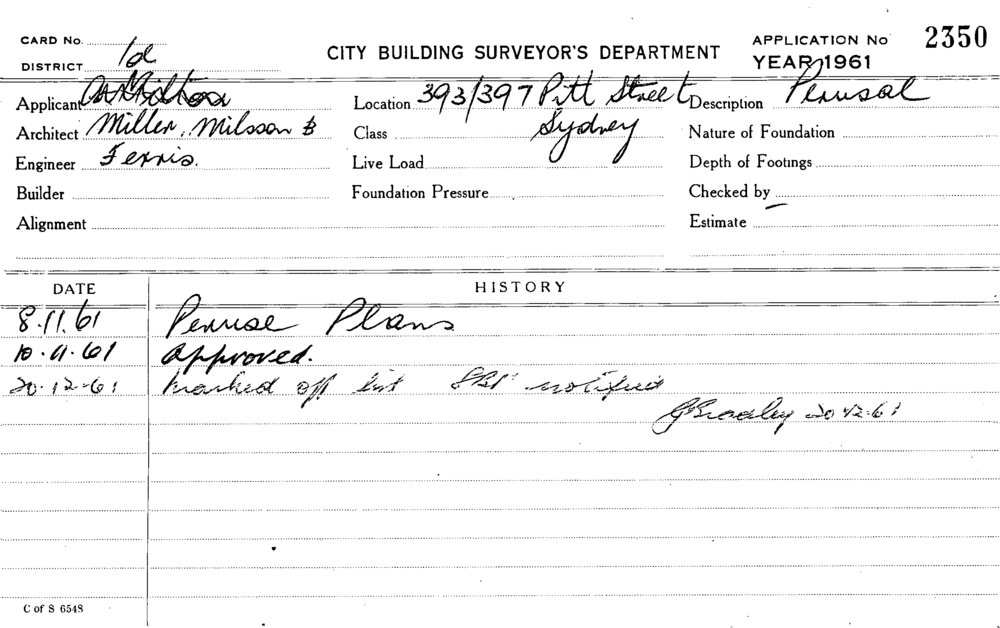 CARD No. 2350
DISTRICT 1d CITY BUILDING SURVEYOR'S DEPARTMENT APPLICATION No
YEAR 1961
Applicant Location 393/397 Pitt Street Description Perusal
Architect Miller, Milsson & Class Sydney Nature of Foundation
Engineer Ferris. Live Load Depth of Footings
Builder Foundation Pressure Checked by
Alignment Estimate
DATE HISTORY
8.11.61 Peruse Plans
10.11.61 approved.
20.12.61 marked off list notified
GBradley 20.12.61
C of S 6548